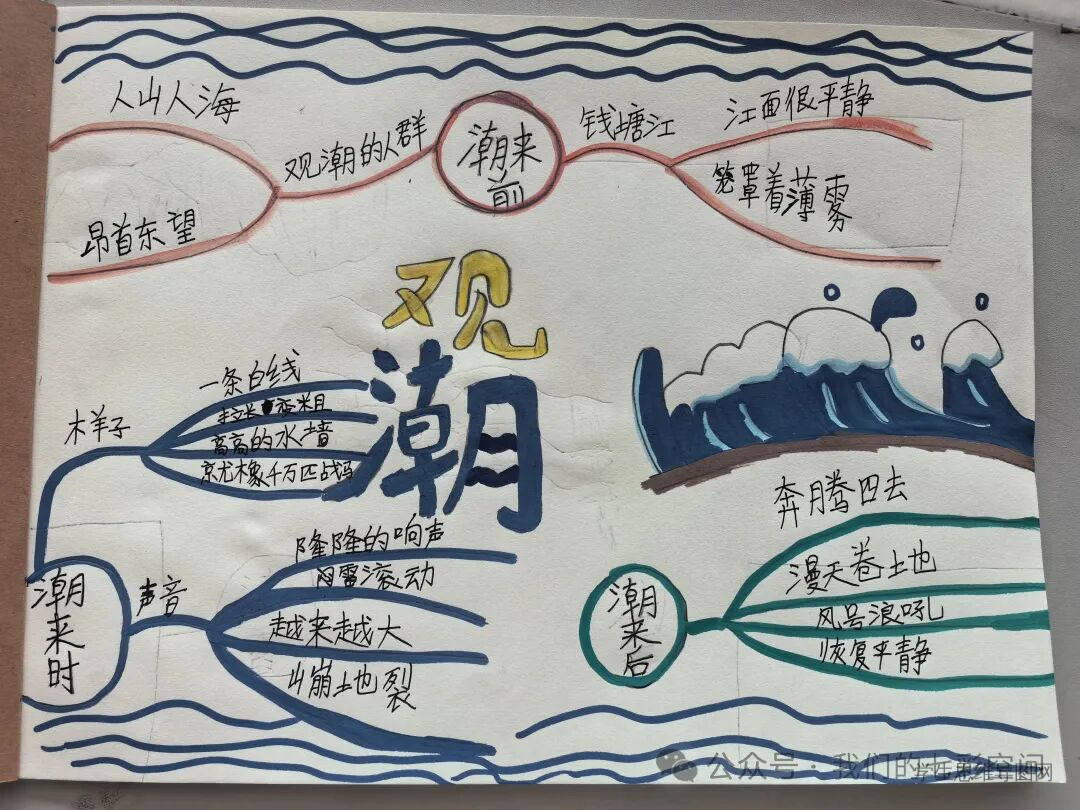 人山人海
昂首东望
观潮的人群
潮来前
钱塘江
江面很平静
笼罩着薄雾
观潮
样子
一条白线
拉长 变粗
高高的水墙
就像千万匹战马
潮来时
声音
隆隆的响声
闷雷滚动
越来越大
山崩地裂
潮来后
奔腾四去
漫天卷土地
风号浪吼
恢复平静
公众号·我们的七彩空间